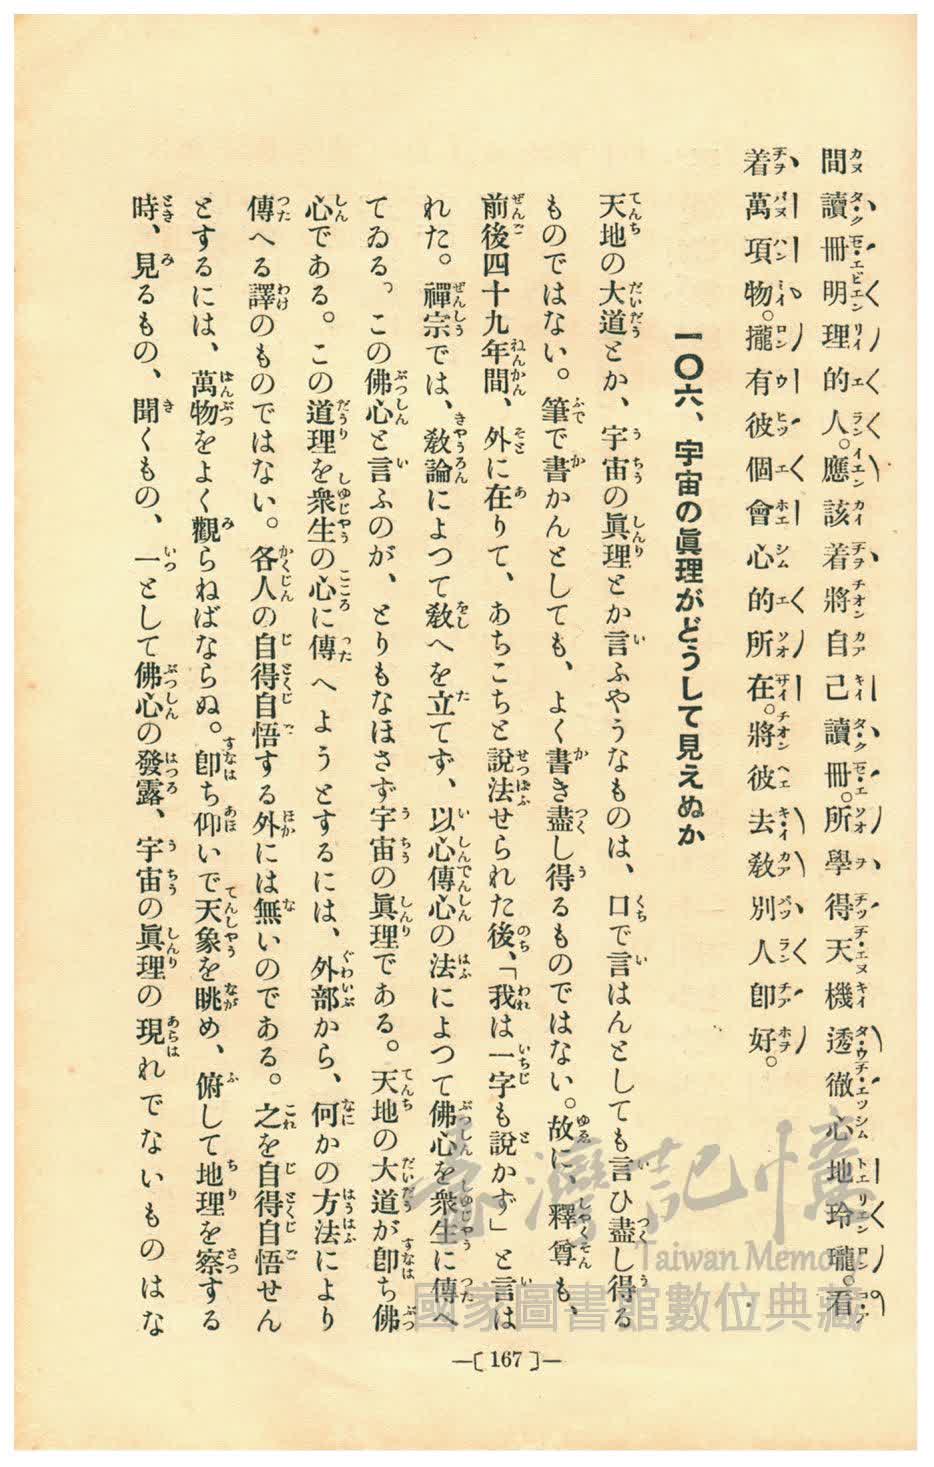 間讀冊明理的人。應該着將自己讀冊。所學得天機透徹心地玲瓏。看
着萬項物。攏有彼個會心的所在。將彼去教別人即好。
一〇六、宇宙の眞理がどうして見えぬか
天地の大道とか、宇宙の眞理とか言ふやうなものは、口で言はんとしても言ひ盡し得る
ものではない。筆で書かんとしても、よく書き盡し得るものではない。故に、釋尊も、
前後四十九年間、外に在りて、あちこちと說法せられた後、「我は一字も說かず」と言は
れた。禪宗では、敎論によつて敎へを立てず、以心傳心の法によつて佛心を衆生に傳へ
てゐる。この佛心と言ふのが、とりもなほさず宇宙の眞理である。天地の大道が卽ち佛
心である。この道理を衆生の心に傳へようとするには、外部から、何かの方法により
傳へる譯のものではない。各人の自得自悟する外には無いのである。之を自得自悟せん
とするには、萬物をよく觀らねばならぬ。卽ち仰いで天象を眺め、俯して地理を察する
時、見るもの、聞くもの、一として佛心の發露、宇宙の眞理の現れでないものはな
—〔167〕—
臺灣記憶
Taiwan Memory
國家圖書館數位典藏